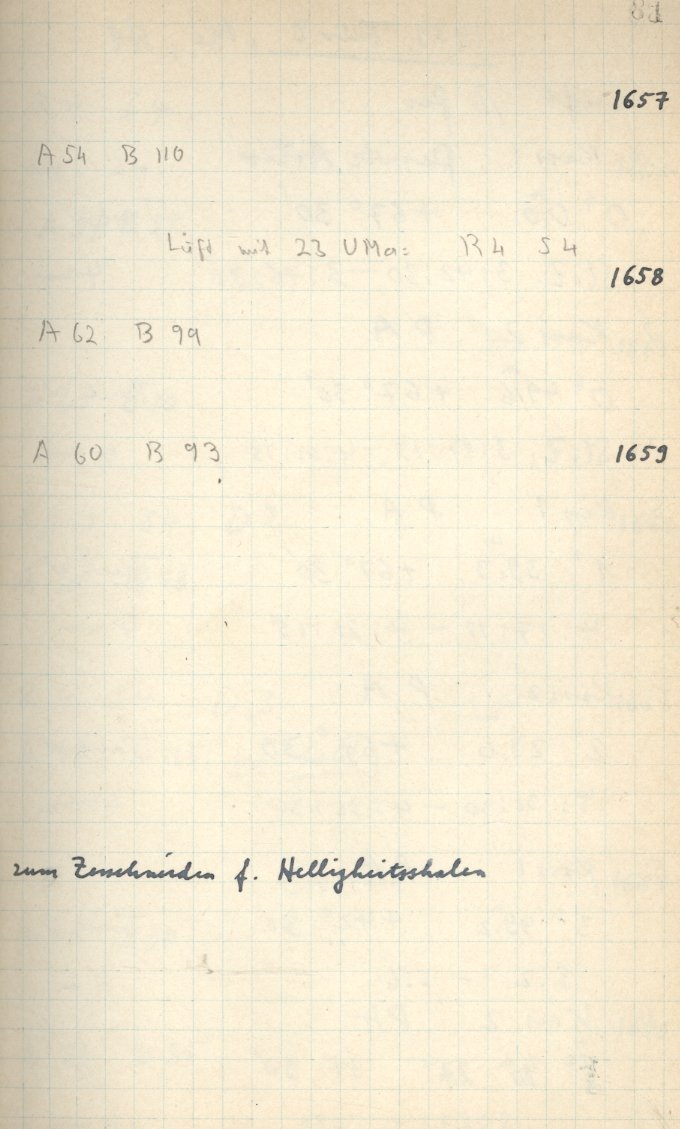 81
1657
A 54 B 110
Luft mit 23 UMa: R4 S4
1658
A 62 B 99
A 60 B 93 1659
zum Zerschneiden f. Helligkeitsskalen